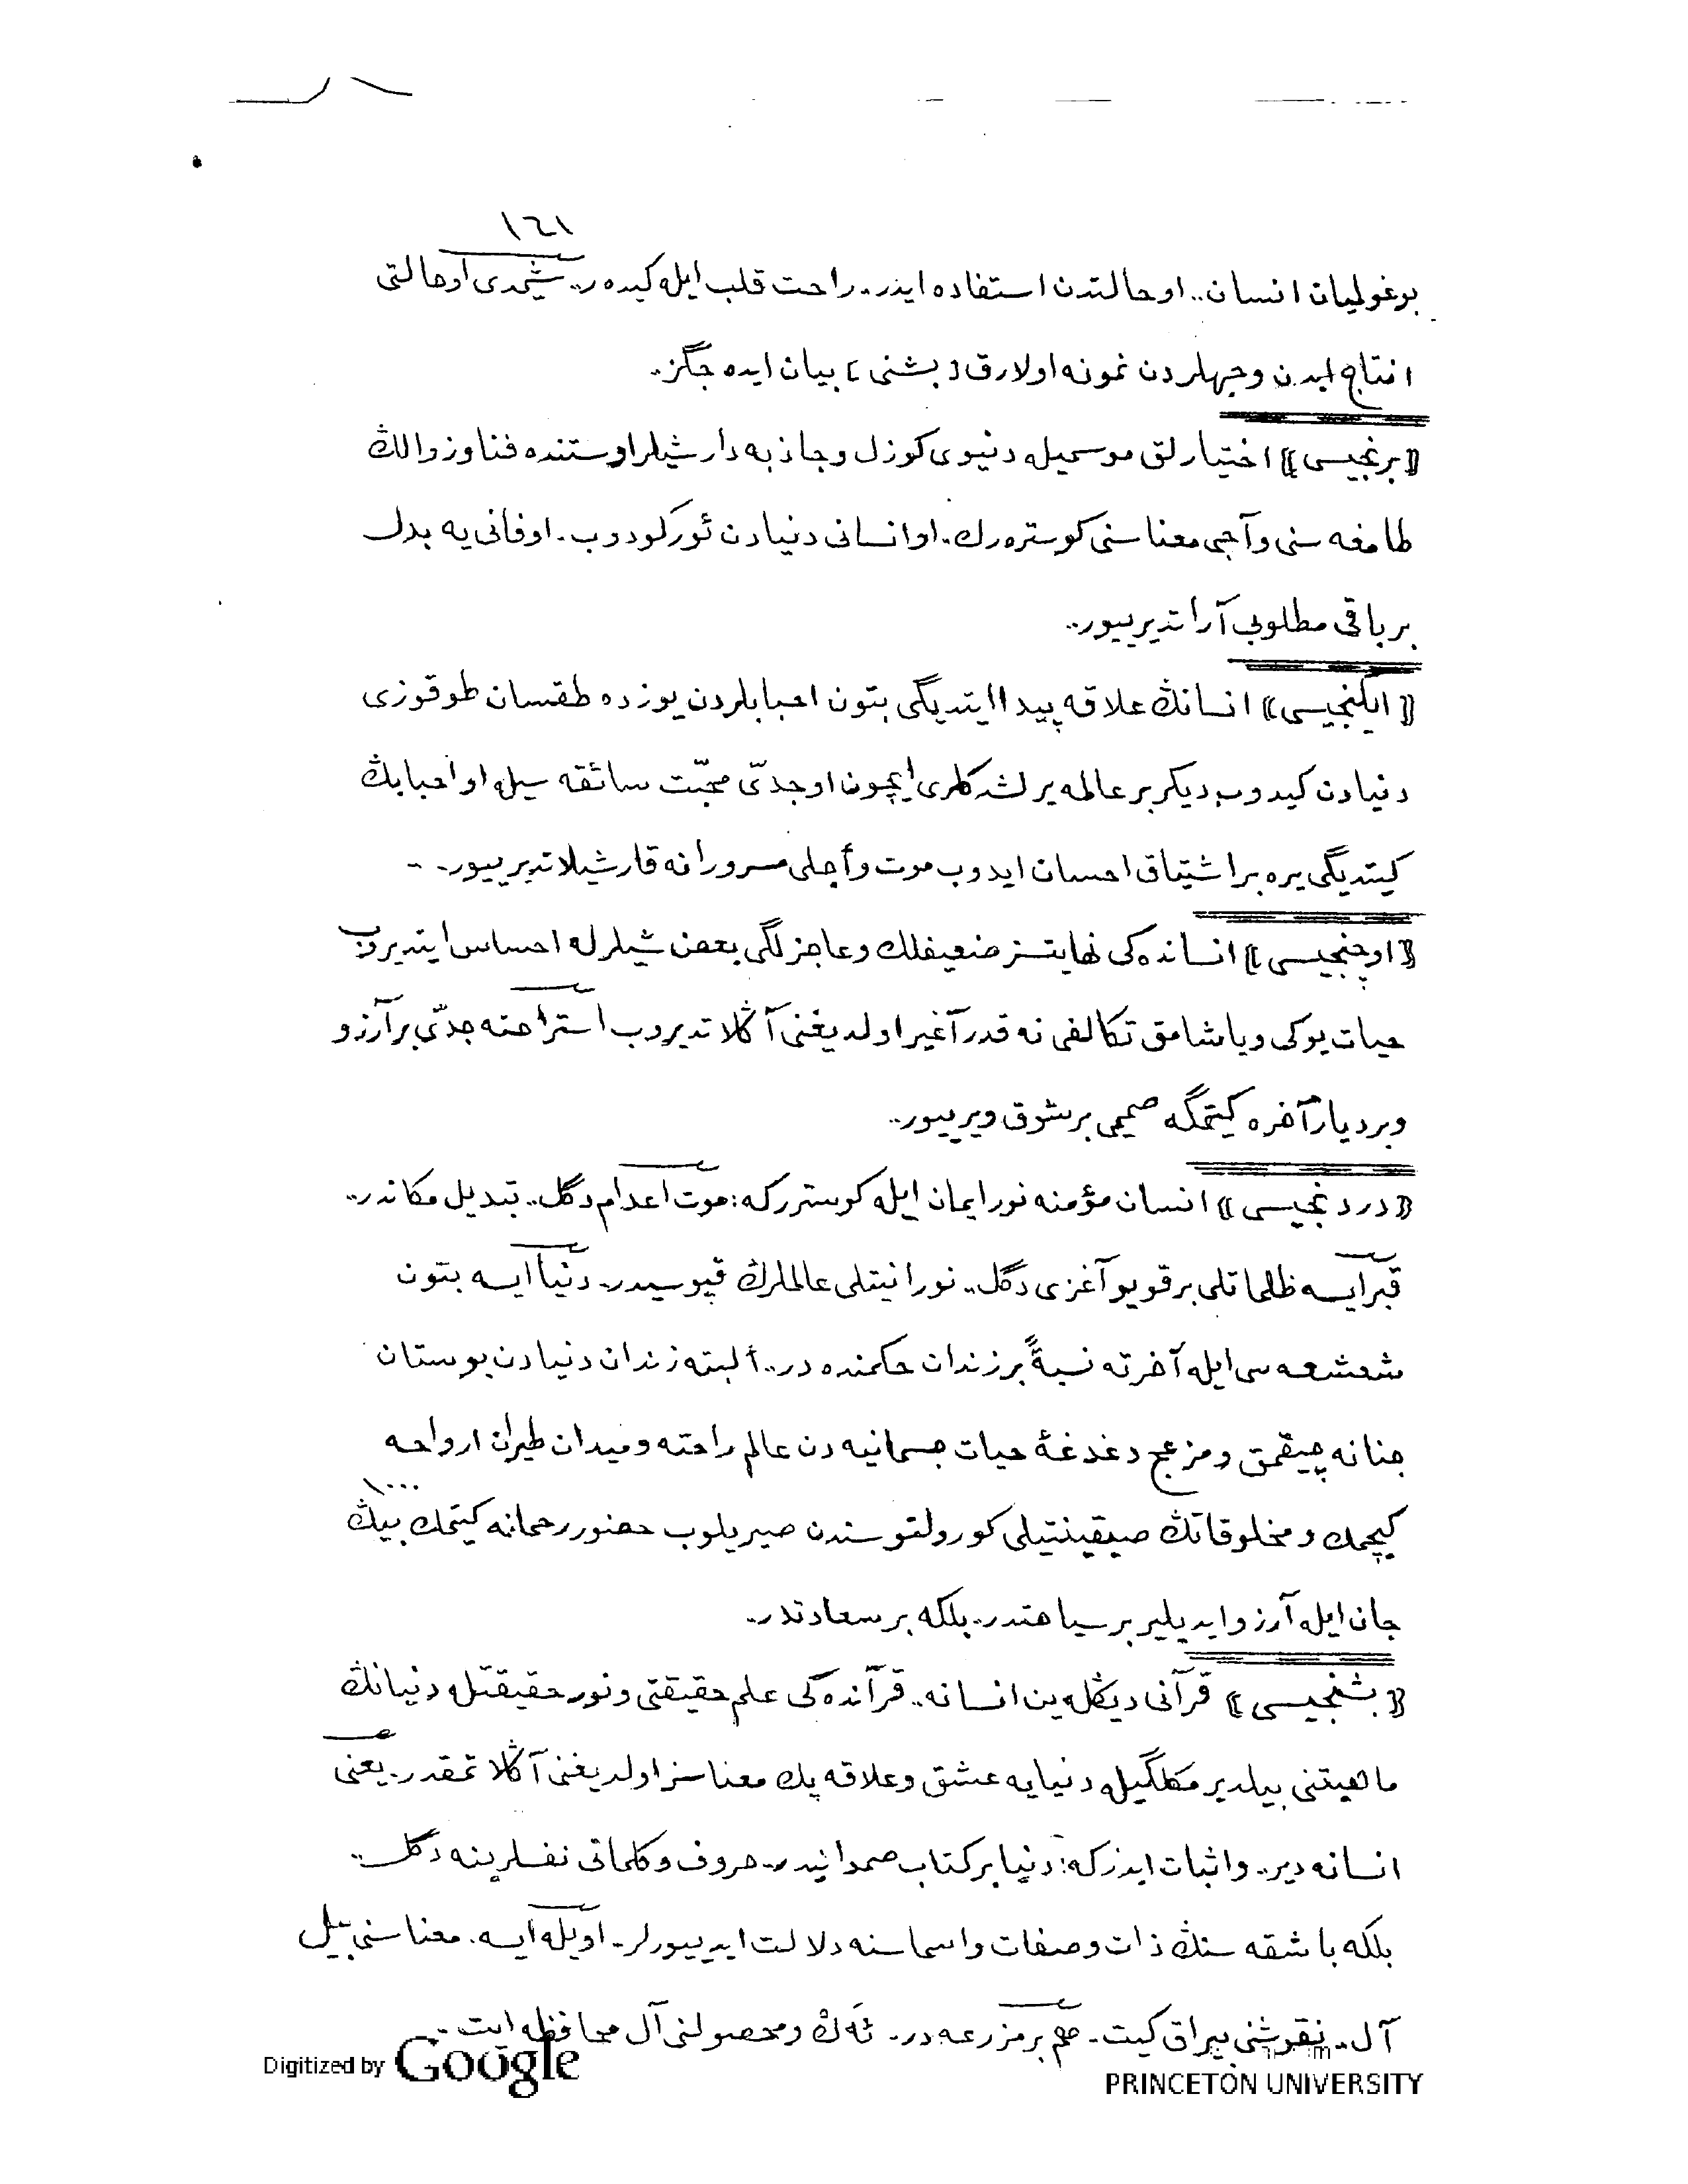 ١٦١
بوغولميان انسان.. او حالتدن استفاده ايدر.. راحت قلب ايله كيده ر.. شيمدى او حالتى
انتاج ايدن وجهلردن نمونه اولارق [ بشنى ] بيان ايده جگز..
﴿برنجيسى﴾ اختيارلق موسميله دنيوى كوزل وجاذبه دار شيلر اوستنده فنا وزوالڭ
طامغه سنى وآجى معناسنى كوستره رك.. او انسانى دنيادن ئوركودوب.. او فانى يه بدل
بر باقى مطلوبى آراتديرييور..
﴿ايكنجيسى﴾ انسانڭ علاقه پيدا ايتديگى بتون احبابلردن يوزده طقسان طوقوزى
دنيادن كيدوب ديكر بر عالمه يرلشدكلرى ايچون او جدّى محبّت سائقه سيله او احبابڭ
كيتديگى يره بر اشتياق احسان ايدوب موت وأجلى مسرورانه قارشيلاتديرييور..
﴿اوچنجيسى﴾ انسانده كى نهايتسز ضعيفلك وعاجزلگى بعض شيلرله احساس ايتديروب
حيات يوكى وياشامق تكالفى نه قدر آغير اولديغنى آڭلاتديروب استراحته جدّى بر آرزو
وبر ديار آخره كيتمگه صميمى بر شوق ويرييور..
﴿دردنجيسى﴾ انسان مؤمنه نور ايمان ايله كوستررکه: موت اعدام دگل.. تبديل مكاندر..
قبر ايسه ظلماتلى بر قويو آغزى دگل.. نورانيتلى عالملرڭ قپوسيدر.. دنيا ايسه بتون
شعشعه سى ايله آخرته نسبةً بر زندان حكمنده در.. ألبته زندان دنيادن بوستان
جنانه چيقمق ومزعج دغدغۀ حيات جسمانيه دن عالم راحته وميدان طيران ارواحه
كيچمك ومخلوقاتڭ صيقينتيلى كورولتوسندن صيريلوب حضور رحمانه كيتمك بيڭ ١٠٠٠
جان ايله آرزو ايديلير بر سياحتدر.. بلكه بر سعادتدر..
﴿بشنجيسى﴾ قرآنى ديڭله ين انسانه.. قرآنده كى علم حقيقتى ونور حقيقتله دنيانڭ
ماهيتنى بيلديرمكلگيله دنيايه عشق وعلاقه پك معناسز اولديغنى آڭلاتمقدر.. يعنى
انسانه دير.. واثبات ايدركه: دنيا بر كتاب صمدانيدر.. حروف وكلماتى نفسلرينه دگل..
بلكه باشقه سنڭ ذات وصفات واسماسنه دلالت ايدييورلر.. اويله ايسه.. معناسنى بيل
آل.. نقوشنى بيراق كيت.. هم بر مزرعه در.. ئه ك ومحصولنى آل محافظه ايت..
Digitized by Google
PRINCETON UNIVERSITY